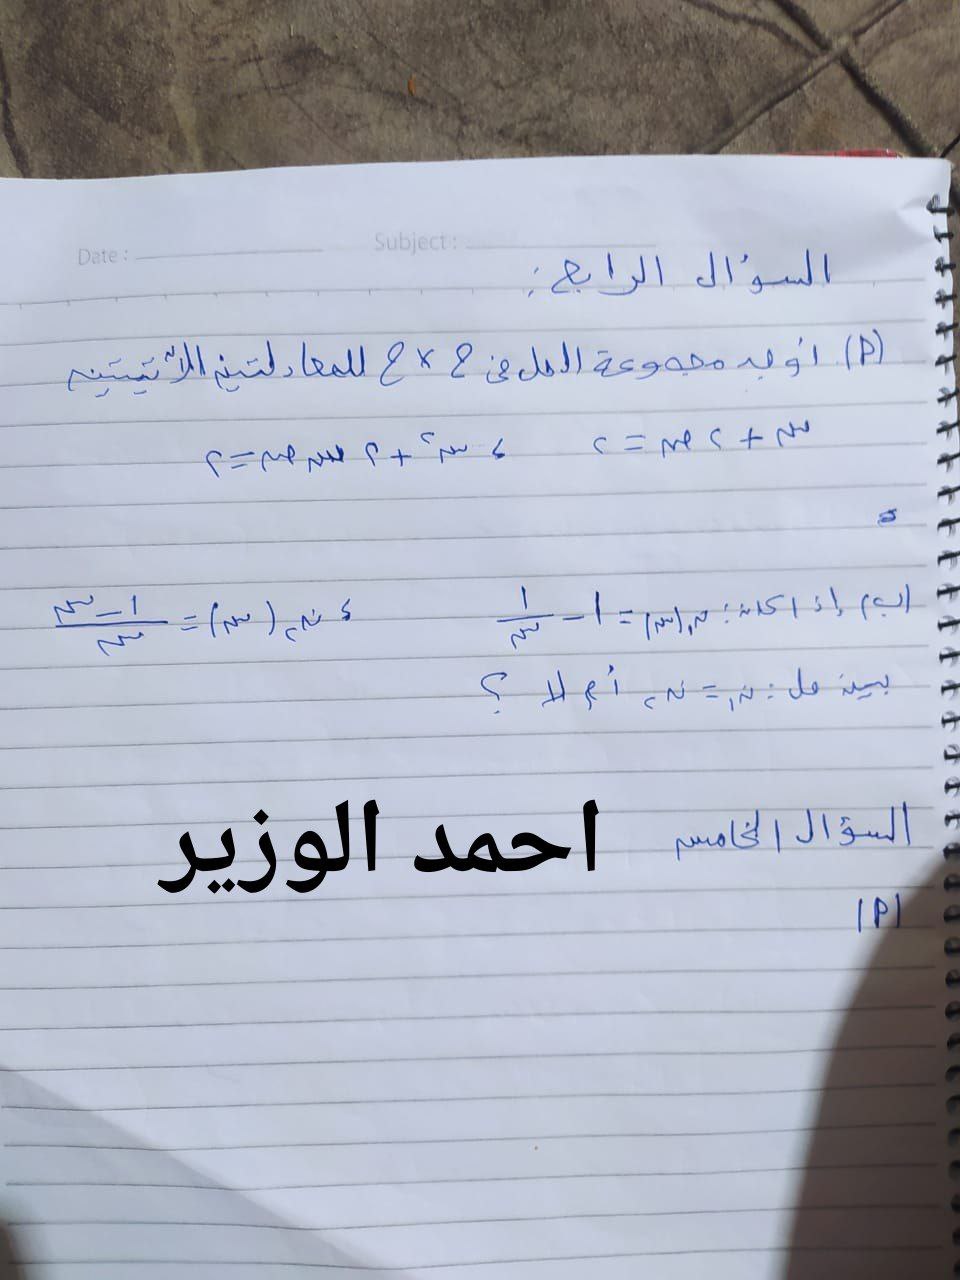 Date : Subject :
السؤال الرابع :
(P) أوجد مجموعة الحل فى ح × ح للمعادلتين الآتيتين
س + ٢ص = ٢ ، س٢ + ٢ س ص = ٢
(ب) إذا كان : ن١(س) = ١ − ١/س ، ن٢(س) = س − ١/س
بين هل : ن١ = ن٢ أم لا ؟
السؤال الخامس
احمد الوزير
(P)